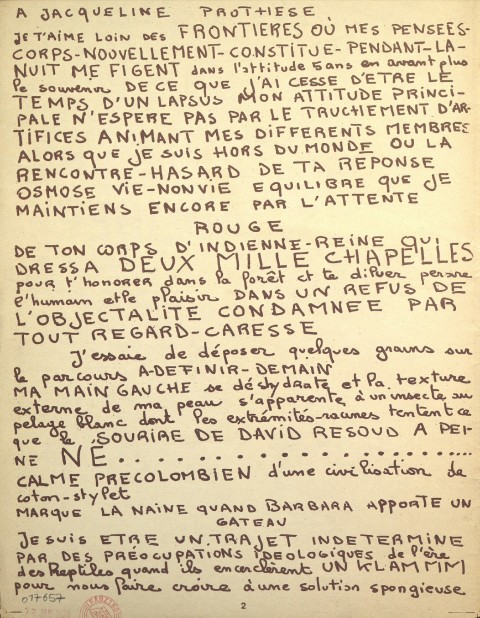 A JACQUELINE PROTHIESE,
JE T'AIME LOIN DES FRONTIERES OÙ MES PENSEES-
CORPS-NOUVELLEMENT-CONSTITUE-PENDANT-LA-
NUIT ME FIGENT dans l'attitude 5 ans en avant plus
le souvenir DE CE QUE J'AI CESSE D'ETRE LE
TEMPS D'UN LAPSUS MON ATTITUDE PRINCI-
PALE N'ESPERE PAS PAR LE TRUCHEMENT D'AR-
TIFICES ANIMANT MES DIFFERENTS MEMBRES
ALORS QUE JE SUIS HORS DU MONDE OU LA
RENCONTRE-HASARD DE TA REPONSE
OSMOSE VIE-NONVIE EQUILIBRE QUE JE
MAINTIENS ENCORE PAR L'ATTENTE
ROUGE
DE TON CORPS D'INDIENNE-REINE QUI
DRESSA DEUX MILLE CHAPELLES
pour t'honorer dans la forêt et te diluer
l'humain et le plaisir DANS UN REFUS DE
L'OBJECTALITE CONDAMNEE PAR
TOUT REGARD-CARESSE
J'essaie de déposer quelques grains sur
le parcours A-DEFINIR-DEMAIN
MA MAIN GAUCHE se déshydrate et la texture
externe de ma peau s'apparente à un insecte au
pelage blanc dont les extrémités-racines tentent ce
que le SOURIRE DE DAVID RESOUD A PEI-
NE NE....................
CALME PRECOLOMBIEN d'une civilisation de
coton-stylet
MARQUE LA NAINE QUAND BARBARA APPORTE UN
GATEAU
JE SUIS ETRE UN TRAJET INDETERMINE
PAR DES PRÉOCCUPATIONS IDEOLOGIQUES de l'ère
des Reptiles quand ils encerclèrent UN KLAMMM
pour nous faire croire à une solution spongieuse
017657
2